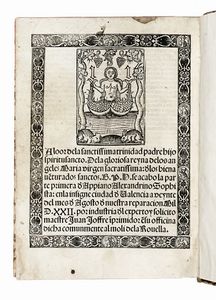 A loor dela sanctissima trinidad padre hijo
spiritusancto. Dela gloriosa reyna delos an
geles Maria virgen sacratissima: & los biena
uēturados sanctos. G. P. N. se acabo la par
te primera d Appiano Alexandrino Sophi
sta: enla insigne ciudad d Ualencia a veynte
del mes d Agosto d nuestra reparacion. Mil
D.XXII. por industria dl experto y solicito
maestre Juan Joffre iprimidor: en su officina
dicha comunmente al moli dela Rouella.